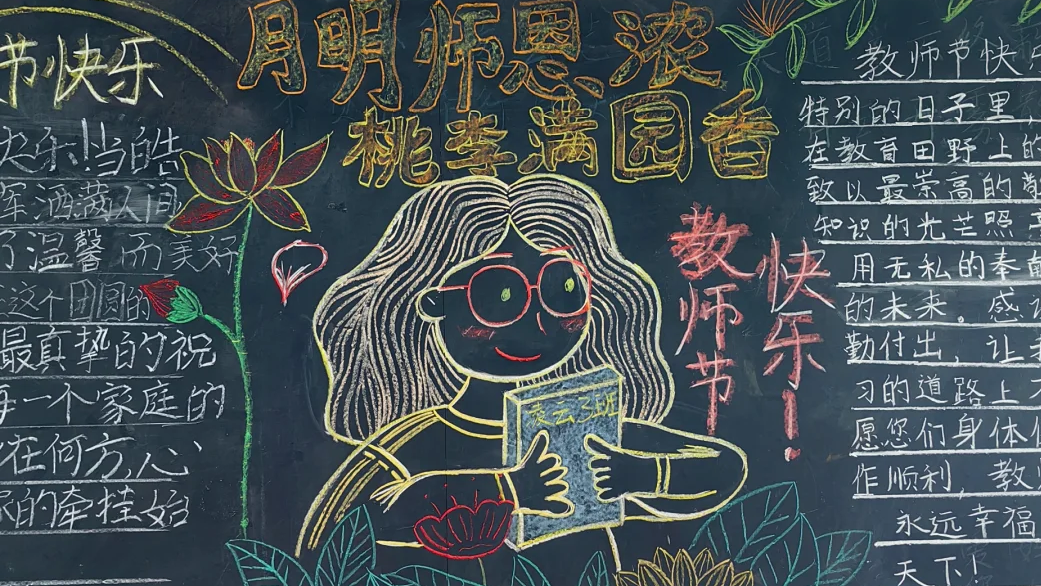 月明师恩浓
桃李满园香
节快乐
快乐!当皓
挥洒满人间
了温馨而美好
这个团圆的
最真挚的祝
每一个家庭的
在何方,心
的牵挂始
教师节
快乐!
凌云3班
教师节快
特别的日子里,
在教育田野上的
致以最崇高的敬
知识的光芒照亮
用无私的奉献
的未来。感
勤付出,让
习的道路上
愿您们身体
作顺利,教
永远幸福
天下!